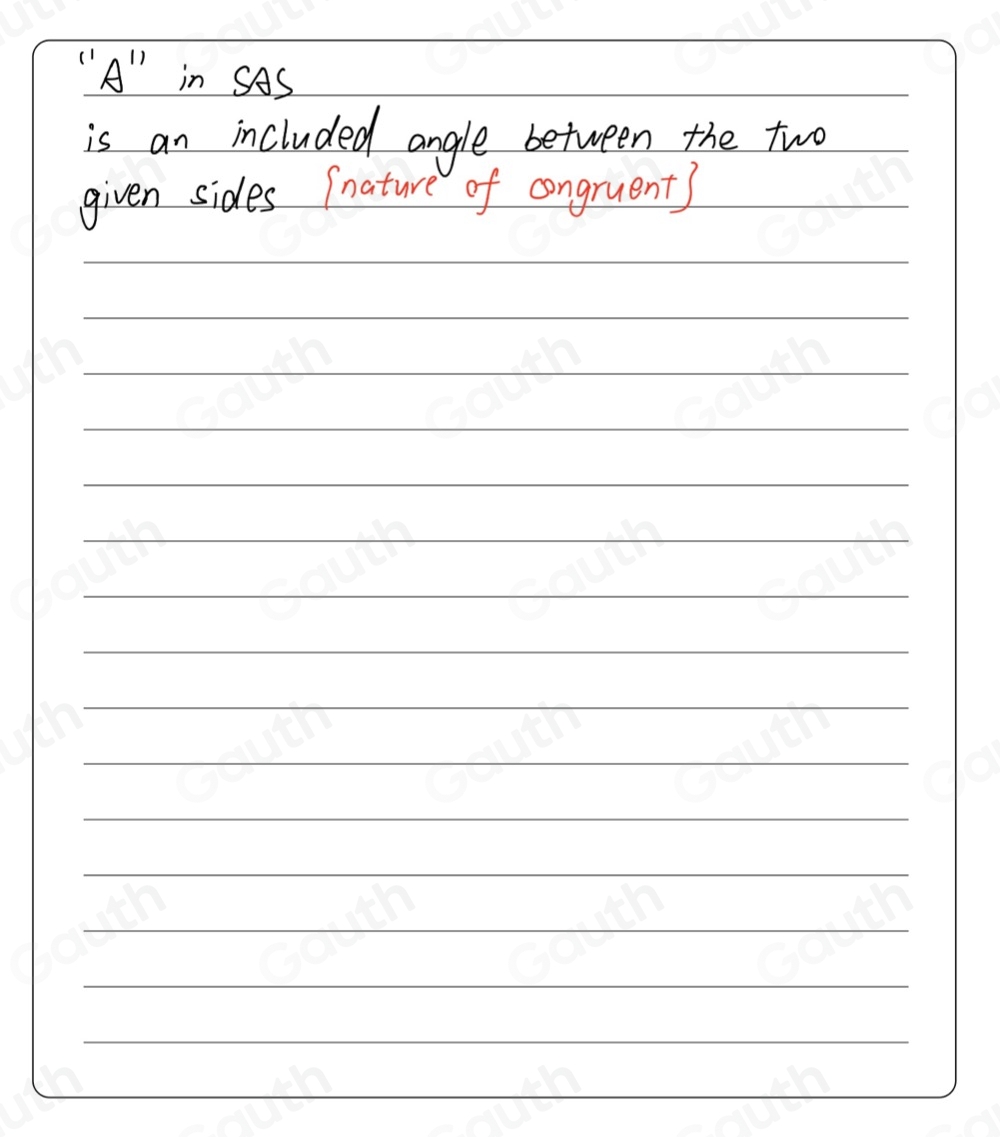 "A" in SAS
is an included angle between the two
given sides {nature of congruent}